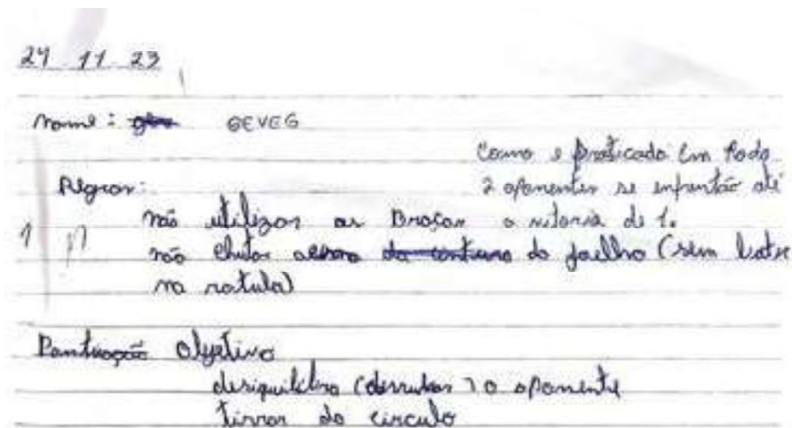 24 11 23
nome: GEVEG
Como e praticado Em Roda
Régras: 2 oponentes se enfrentão até
não utilizar os Braços a vitoria de 1.
1 não chutar acima da cintura do joelho (sem bater
na rotula)
Pontuação objetivo
desiquilibra (derrubar) o oponente
tirrar do circulo